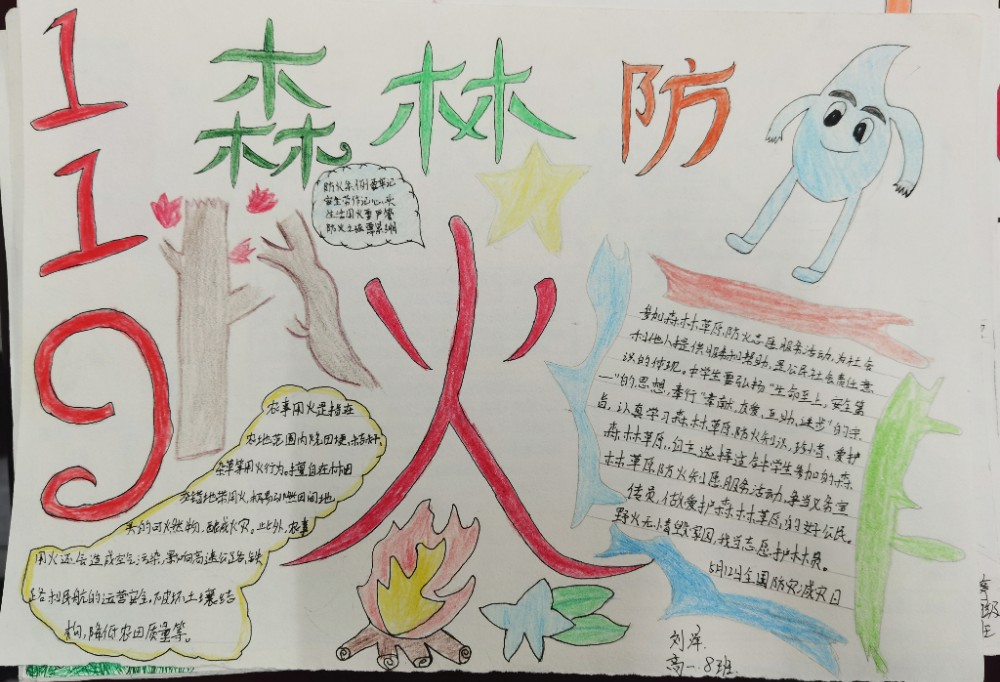 119
森林防
火
防火
农事用火是指在
农地范围内烧田埂、秸秆、
杂草等用火行为。擅自在林田
交错地带用火,极易引燃田间地
头的可燃物,酿成火灾。此外,农事
用火还会造成空气污染,影响高速公路、铁
路和民航的运营安全,破坏土壤结
构,降低农田质量等。
参加森林草原防火志愿服务活动,为社会
和他人提供服务和帮助,是公民社会责任意
识的体现。中学生要弘扬“生命至上,安全第
一”的思想,奉行“奉献、友爱、互助、进步”的宗
旨,认真学习森林草原防火知识,珍惜、爱护
森林草原,自主选择适合中学生参加的森
林草原防火志愿服务活动,争当义务宣
传员,做爱护森林草原的好公民。
野火无情毁家园,我当志愿护林员。
5月12日全国防灾减灾日
刘泽
高一·8班